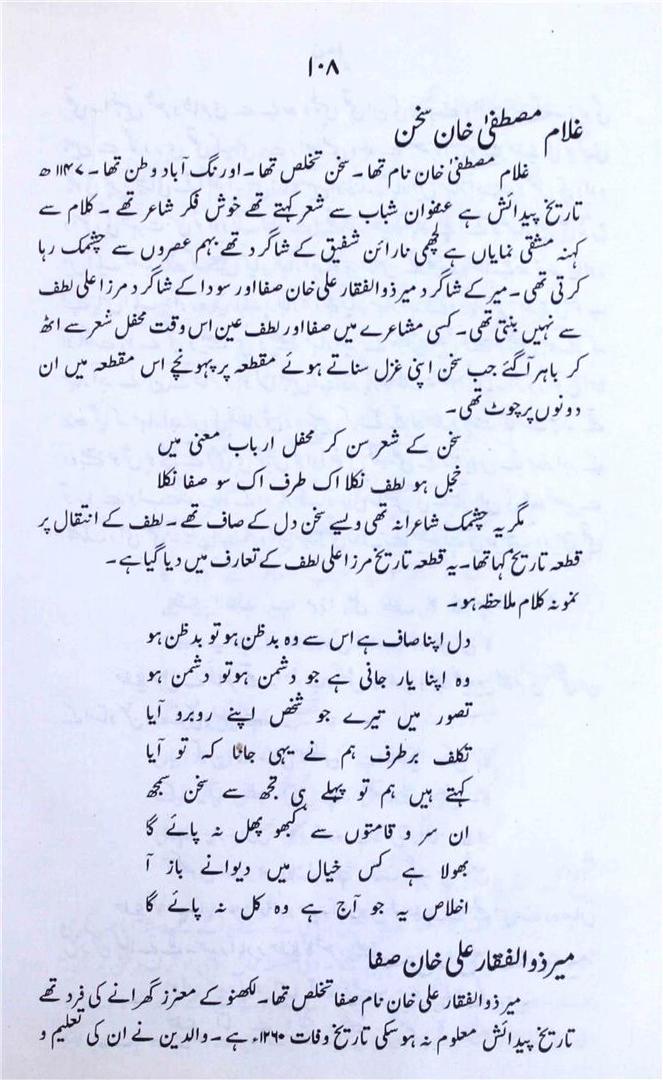 ۱۰۸
غلام مصطفیٰ خان سخن
غلام مصطفیٰ خان نام تھا۔ سخن تخلص تھا۔ اورنگ آباد وطن تھا۔ ۱۱۴۷ ھ
تاریخ پیدائش ہے عنفوان شباب سے شعر کہتے تھے خوش فکر شاعر تھے۔ کلام سے
کہنہ مشقی نمایاں ہے لچھمی نارائن شفیق کے شاگرد تھے ہم عصروں سے چشمک رہا
کرتی تھی۔ میر کے شاگرد میر ذوالفقار علی خان صفا اور سودا کے شاگرد مرزا علی لطف
سے نہیں بنتی تھی۔ کسی مشاعرے میں صفا اور لطف عین اس وقت محفل شعر سے اٹھ
کر باہر آگئے جب سخن اپنی غزل سناتے ہوئے مقطعہ پر پہونچے اس مقطعہ میں ان
دونوں پر چوٹ تھی۔
سخن کے شعر سن کر محفل ارباب معنی میں
خجل ہو لطف نکلا اک طرف اک سو صفا نکلا
مگر یہ چشمک شاعرانہ تھی ویسے سخن دل کے صاف تھے۔ لطف کے انتقال پر
قطعہ تاریخ کہا تھا۔ یہ قطعہ تاریخ مرزا علی لطف کے تعارف میں دیا گیا ہے۔
نمونہ کلام ملاحظہ ہو۔
دل اپنا صاف ہے اس سے وہ بدظن ہو تو بدظن ہو
وہ اپنا یار جانی ہے جو دشمن ہو تو دشمن ہو
تصور میں تیرے جو شخص اپنے روبرو آیا
تکلف برطرف ہم نے یہی جانا کہ تو آیا
کہتے ہیں ہم تو پہلے ہی تجھ سے سخن سمجھ
ان سر و قامتوں سے کبھو پھل نہ پائے گا
بھولا ہے کس خیال میں دیوانے باز آ
اخلاص یہ جو آج ہے وہ کل نہ پائے گا
میر ذوالفقار علی خان صفا
میر ذوالفقار علی خان نام صفا تخلص تھا۔ لکھنو کے معزز گھرانے کی فرد تھے
تاریخ پیدائش معلوم نہ ہو سکی تاریخ وفات ۱۲۶۰ء ہے۔ والدین نے ان کی تعلیم و